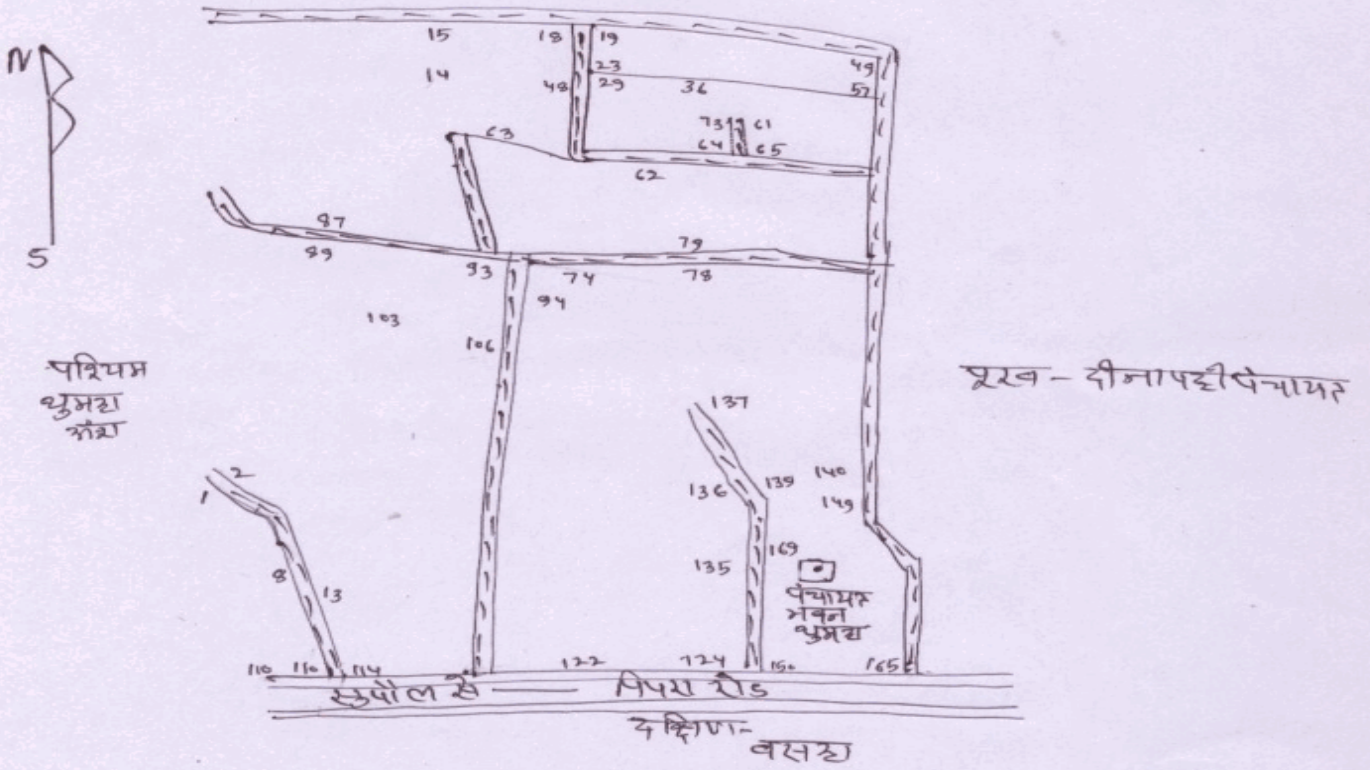 N
15 18 19
14 23 49
48 29 36 52
63 73 61
64 65
62
S
87 79
89 93 74 78
94
103
106
पश्चिम
थुमहा
अंश
पूरब - दीनापट्टी पंचायत
137
2 140
1 136 139 149
8 13 135 169
पंचायत
भवन
थुमहा
110 110 114 122 124 150 165
सुपौल से — पिपरा रोड
दक्षिण-
बसहा